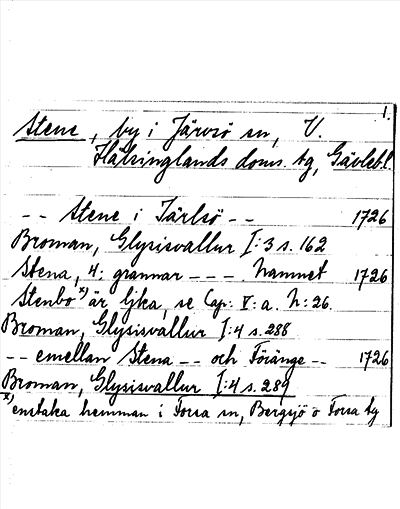 1.
Stene, by i Järvsö sn, V.
Hälsinglands doms. tg, Gävleb.l.
-- Stene i Järlsö -- 1726
Broman, Glysisvallur I:3 s. 162
Stena, 4: grannar --- . Namnet 1726
Stenbo x) är ljka, se Cap: V: a. N: 26.
Broman, Glysisvallur I:4 s. 288
-- emellan Stena -- och Föränge -- 1726
Broman, Glysisvallur I:4 s. 289
x) enstaka hemman i Forsa sn, Bergsjö o Forsa tg